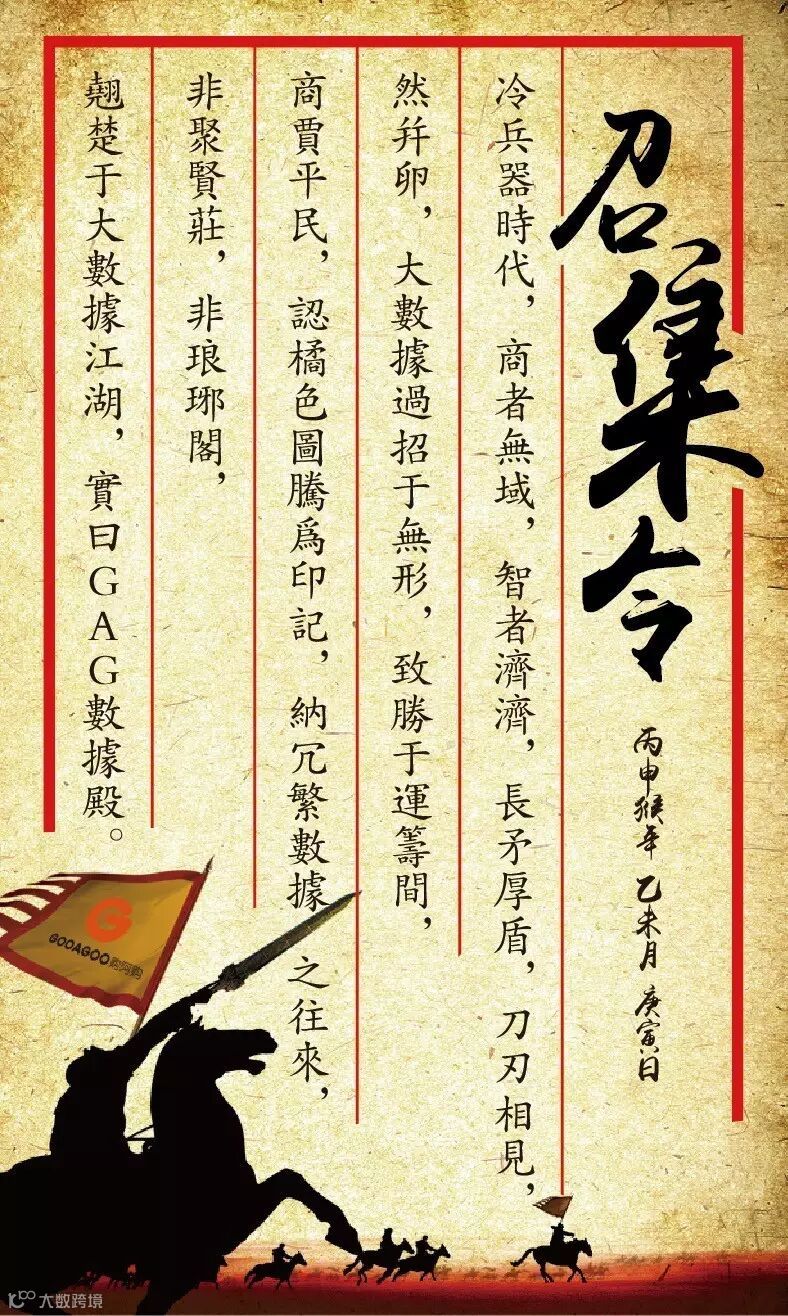 召集令
丙申猴年 乙未月 庚寅日
冷兵器時代，商者無域，智者濟濟，長矛厚盾，刀刃相見，
然并卵，大數據過招于無形，致勝于運籌間，
商賈平民，認橘色圖騰爲印記，納冗繁數據之往來，
非聚賢莊，非琅琊閣，
翹楚于大數據江湖，實曰GAG數據殿。
G
GOOAGOO购阿购
10100 大数跨境